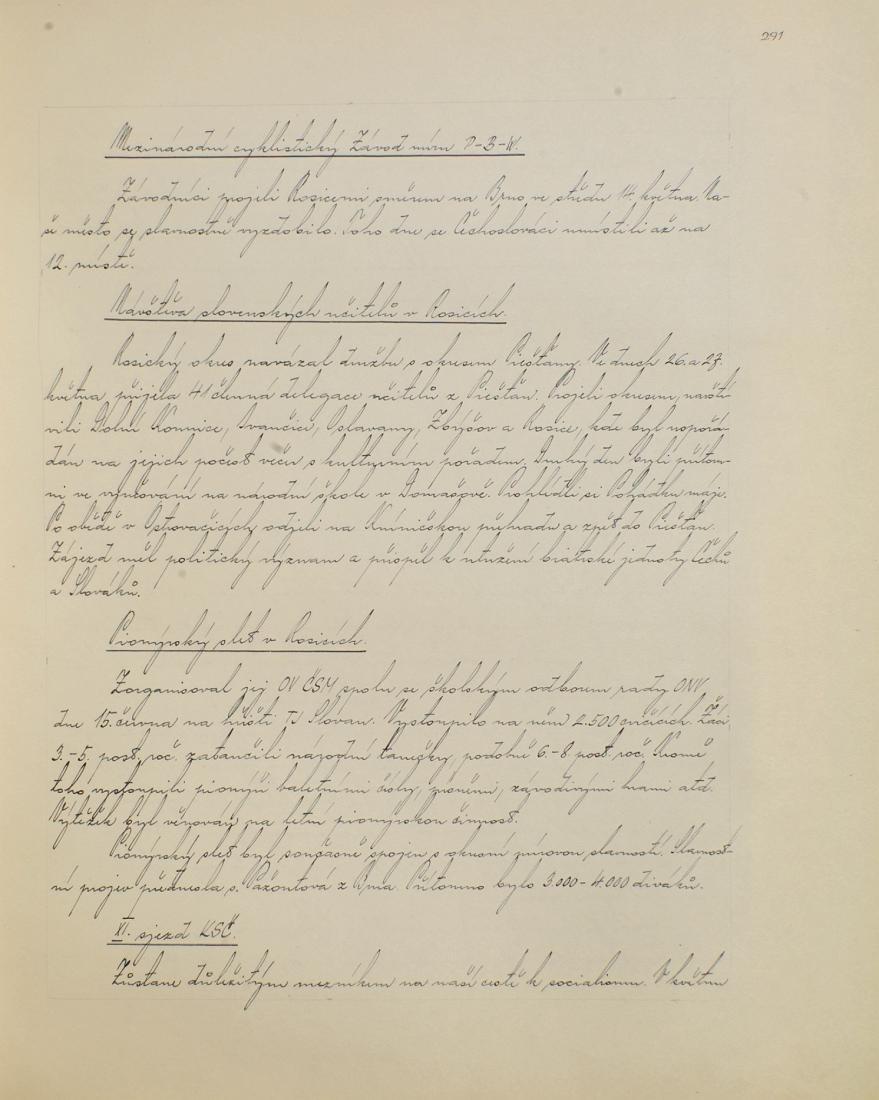 291
Mezinárodní cyklistický Závod míru P-B-W.
Závodníci projeli Rosicemi směrem na Brno ve středu 14. května. Na-
še město se slavnostně vyzdobilo. Toho dne se Čechoslováci umístili až na
12. místě.
Návštěva slovenských učitelů v Rosicích.
Rosický okres navázal družbu s okresem Piešťany. Ve dnech 26. a 27.
května přijela 41 členná delegace učitelů z Piešťan. Projeli okresem, navští-
vili Dolní Kounice, Ivančice, Oslavany, Zbýšov a Rosice, kde byl uspořá-
dán na jejich počest večer s kulturním pořadem. Druhý den byli přítom-
ni ve vyučování na národní škole v Domašově. Prohlédli si Pohádku máje.
Po obědě v Ostrovačicích odjeli na Kníničskou přehradu a zpět do Piešťan.
Zájezd měl politický význam a přispěl k utužení bratrské jednoty Čechů
a Slováků.
Pionýrský slet v Rosicích.
Zorganisoval jej OV ČSM spolu se školským odborem rady ONV
dne 15. června na hřišti TJ Slovan. Vystoupilo na něm 2.500 cvičících. Žáci
3.-5. post. roč. zatančili národní tanečky, podobně 6.-8. post. roč. Kromě
toho vystoupili pionýři baletními čísly, písněmi, závodivými hrami atd.
Výtěžek byl věnován na letní pionýrskou činnost.
Pionýrský slet byl současně spojen s okresní mírovou slavností. Slavnost-
ní projev přednesla s. z Brna. Přítomno bylo 3.000-4.000 diváků.
XI. sjezd KSČ.
Zůstane důležitým mezníkem na naší cestě k socialismu. V květnu